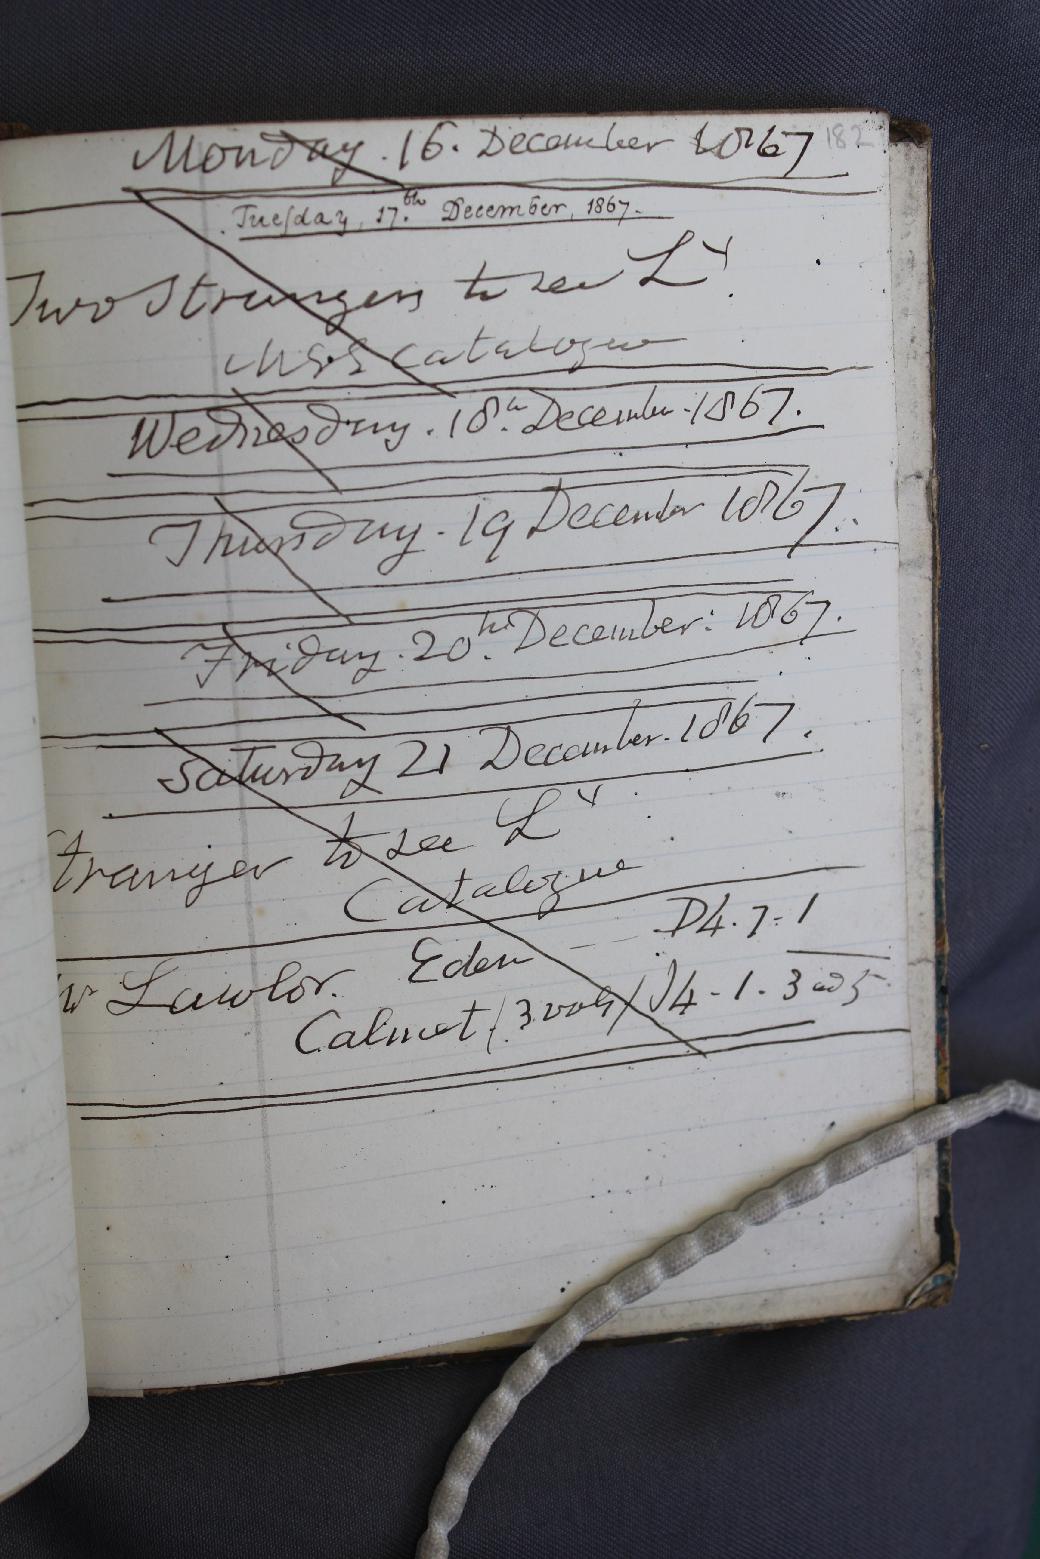 182
Monday. 16. December 1867
Tuesday, 17.th December, 1867.
Two Strangers to see Ly.
MSS Catalogue
Wednesday. 18th December. 1867.
Thursday. 19 December 1867.
Friday. 20th December. 1867.
Saturday 21 December. 1867.
Stranger to see Ly.
Catalogue
Lawlor. Eden — D4.7.1
Calmet (3 vols) J4-1-3 ad 5